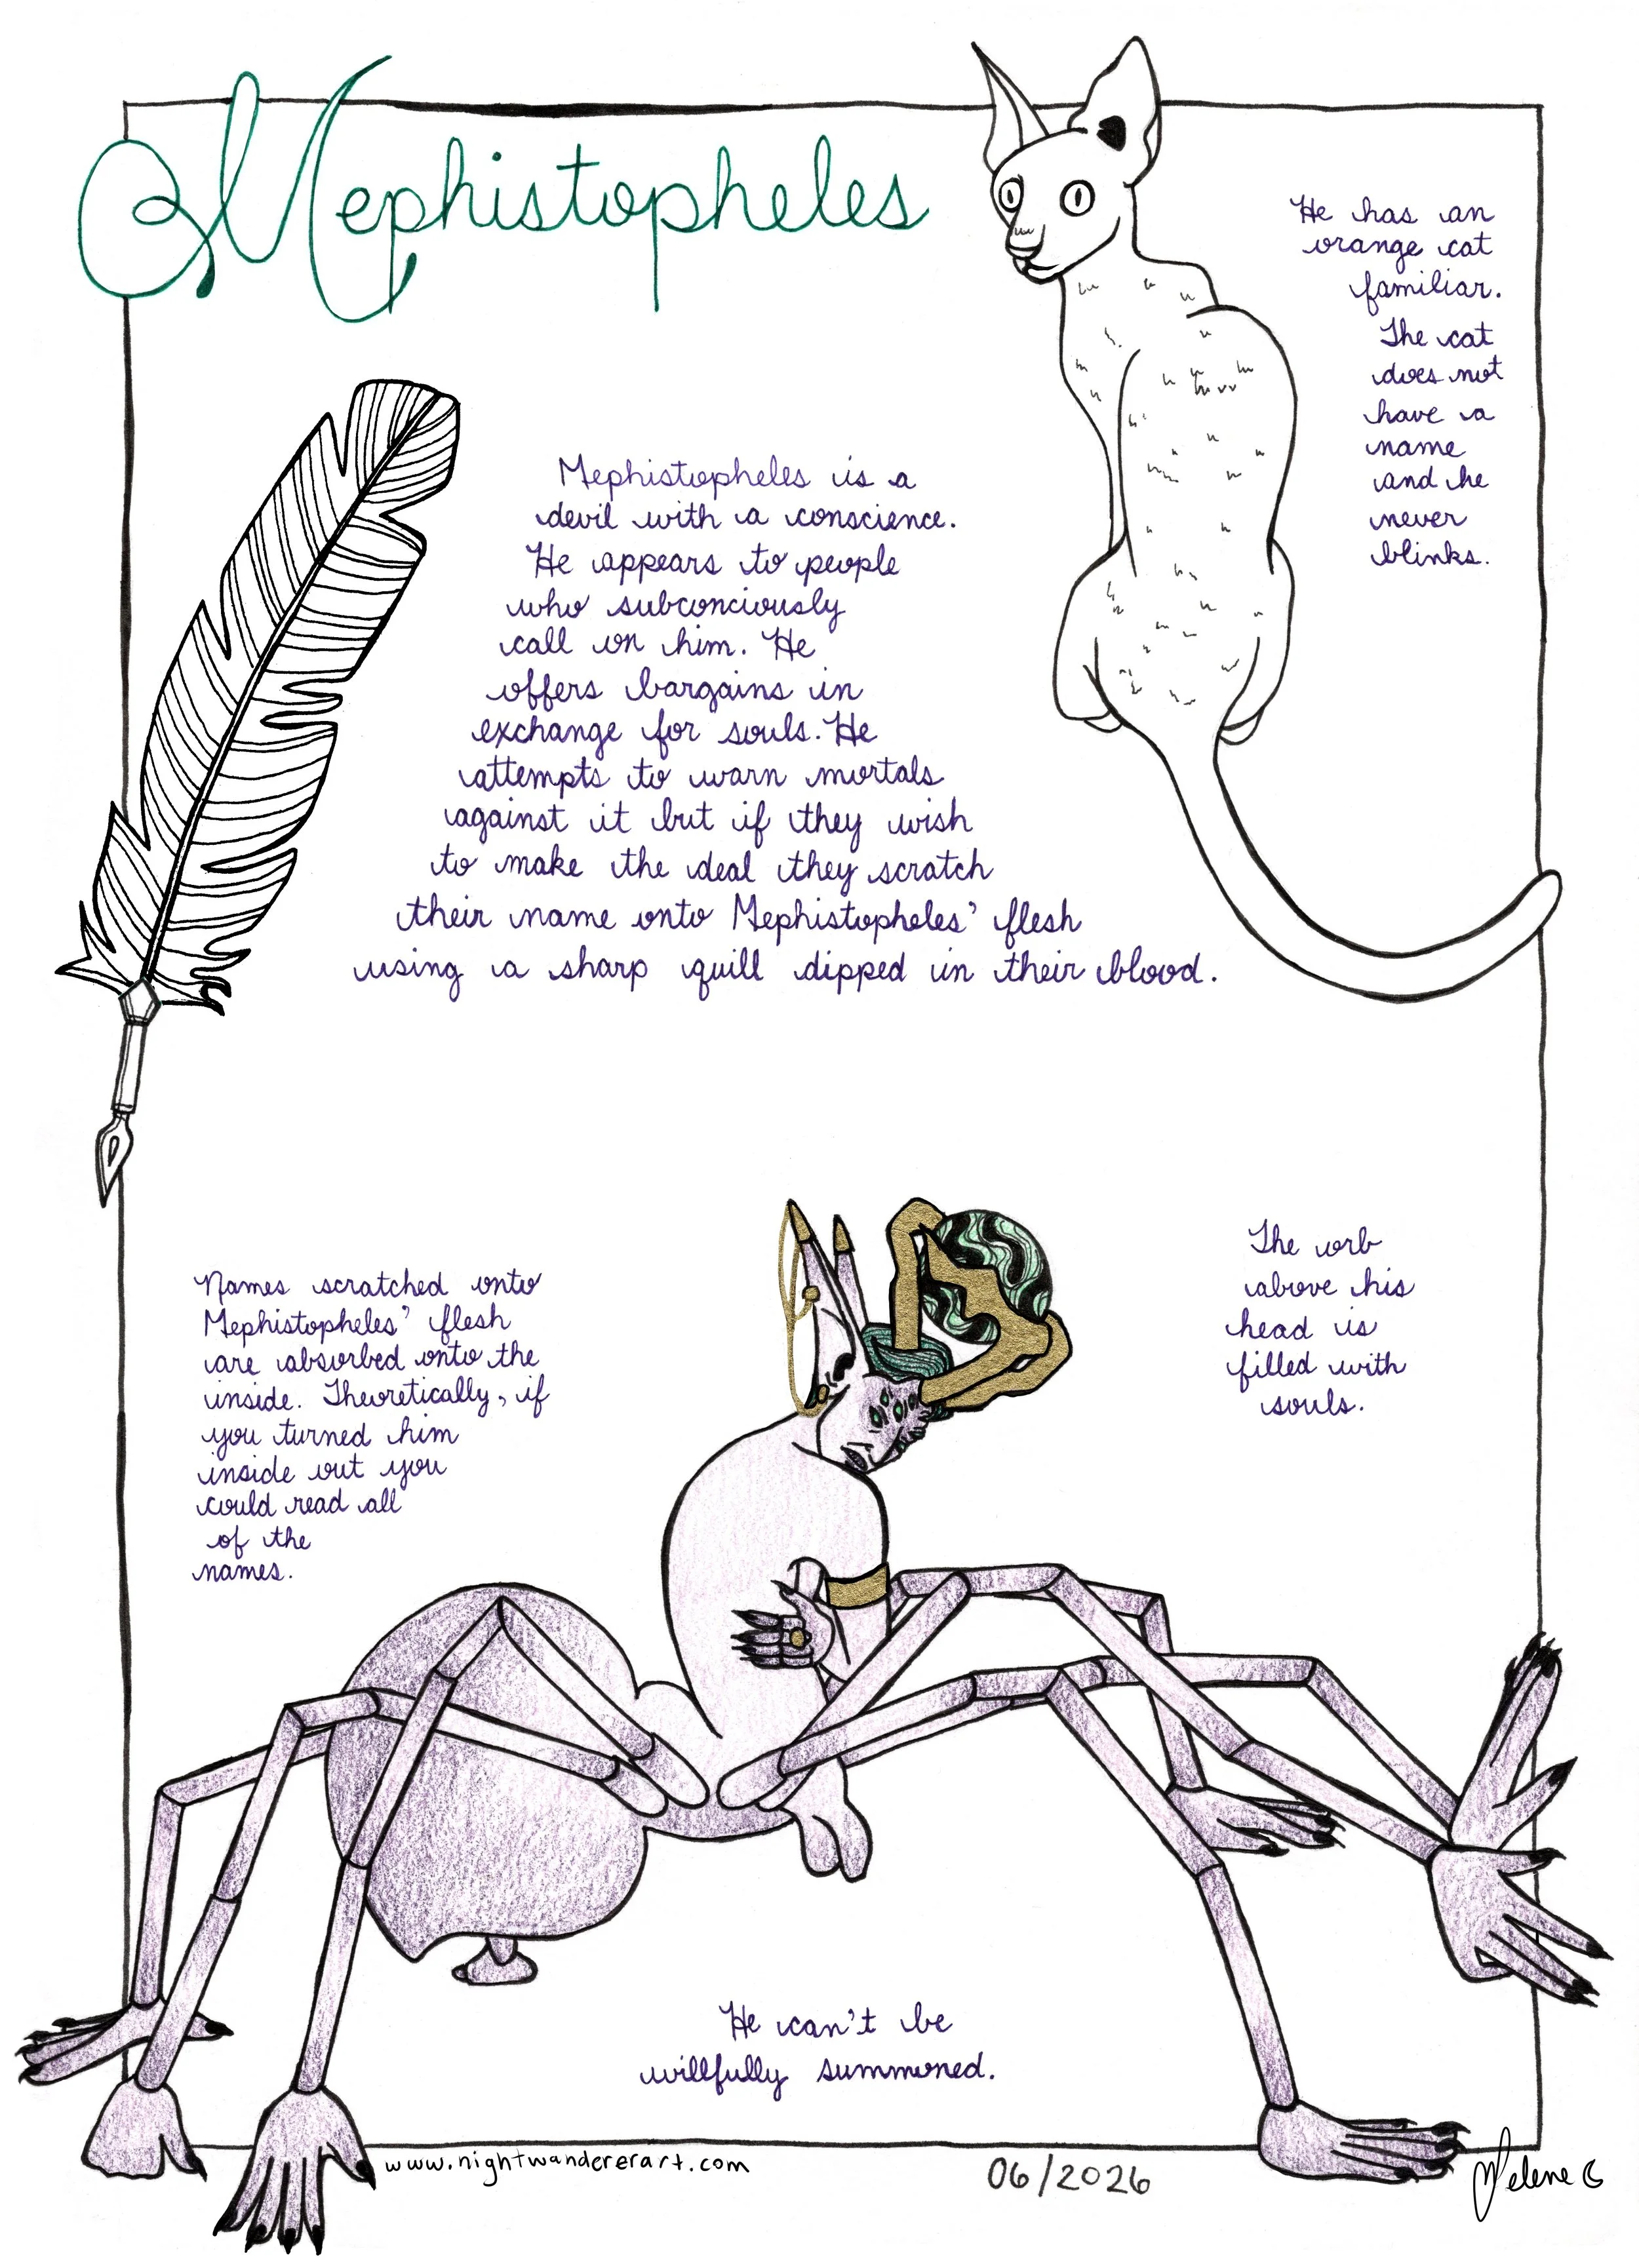 Mephistopheles
He has an
orange cat
familiar.
The cat
does not
have a
name
and he
never
blinks.
Mephistopheles is a
devil with a conscience.
He appears to people
who subconciously
call on him. He
offers bargains in
exchange for souls. He
attempts to warn mortals
against it but if they wish
to make the deal they scratch
their name onto Mephistopheles' flesh
using a sharp quill dipped in their blood.
Names scratched onto
Mephistopheles' flesh
are absorbed onto the
inside. Theoretically, if
you turned him
inside out you
could read all
of the
names.
The orb
above his
head is
filled with
souls.
He can't be
willfully summoned.
www.nightwandererart.com
06/2026
Melene